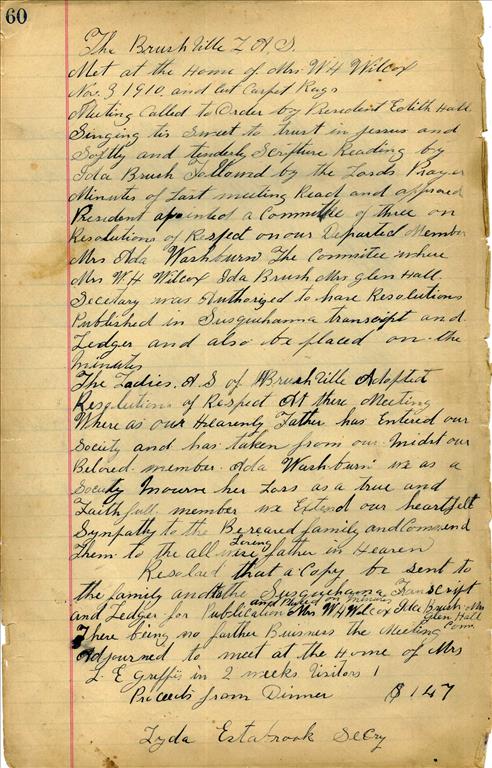 60
The Brushville L A S.
Met at the Home of Mrs W H Wilcox
Nov. 3 1910. and cut Carpet Rags
Meeting Called to Order by President Edith Hall
Singing tis Sweet to trust in jessus and
Softly and tenderly Scripture Reading by
Ida Brush Followed by the Lords Prayer
Minutes of Last meeting Read and approved
President apointed a Committee of three on
Resolutions of Respect on our Departed Member
Mrs Ada Washburn The Commitee where
Mrs W. H Wilcox Ida Brush Mrs glen Hall.
Secetary was Authorized to have Resolutions
Published in Susquehanna transcript and
Ledger and also be placed on the
minutes
The Ladies. A S of Brushville Adopted
Resolutions of Respect At there Meeting
Where as our Heavenly Father has Entered our
Society and has taken from our Midst our
Beloved member Ada Washburn we as a
Society Mourn her Loss as a true and
Faithfull member we Extend our heartfelt
Sympathy to the Bereaved family and Commend
them to the all wise Loving father in Heaven
Resolved that a Copy be sent to
the family and to the Susquehanna Transcript
and Ledger for Publication and Placed on Minutes Mrs W H Wilcox Ida Brush Mrs
Glen Hall
Com.
There being no farther Buisness the Meeting
Adjourned to meet at the Home of Mrs
L. E Griffis in 2 weeks Visitors 1
Proceeds from Dinner $ 1 47
Lyda Estabrook Secry